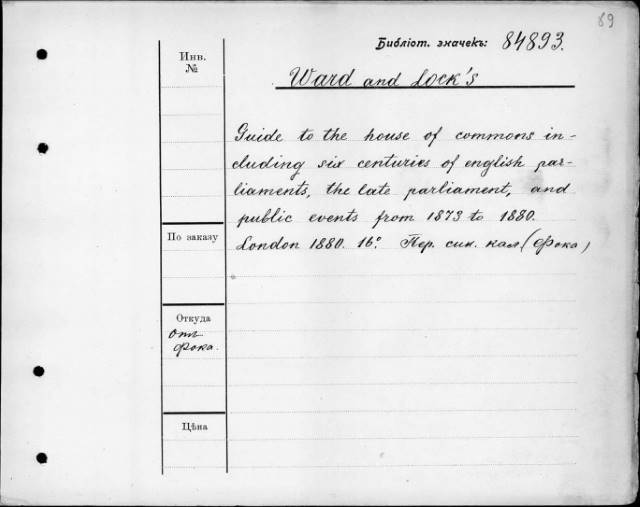 89
Библіот. значекъ: 84893.
Инв.
№
Ward and Lock's
Guide to the house of commons in-
cluding six centuries of english par-
liaments, the late parliament, and
public events from 1873 to 1880.
По заказу
London 1880. 16º. Пер. син. кал (Фока)
Откуда
отъ
Фока.
Цѣна